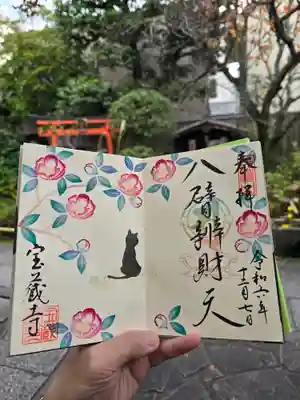 奉拝
令和六年
十二月七日
八臂辨財天
宝蔵寺